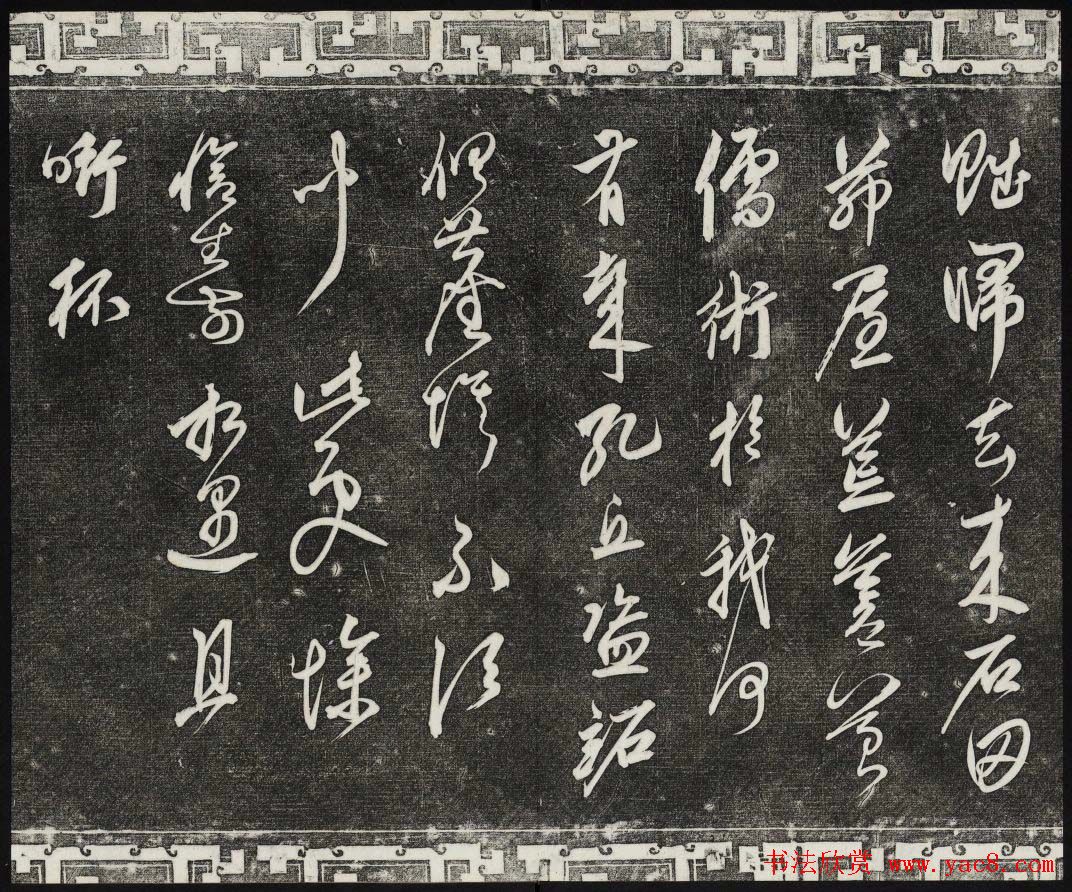 賦歸去来石田
茅屋荒蒼苔
儒術於我何
有哉孔丘盗跖
俱塵埃不須
聞此意慘
愴生前相遇且
銜杯
书法欣赏 www.yac8.com